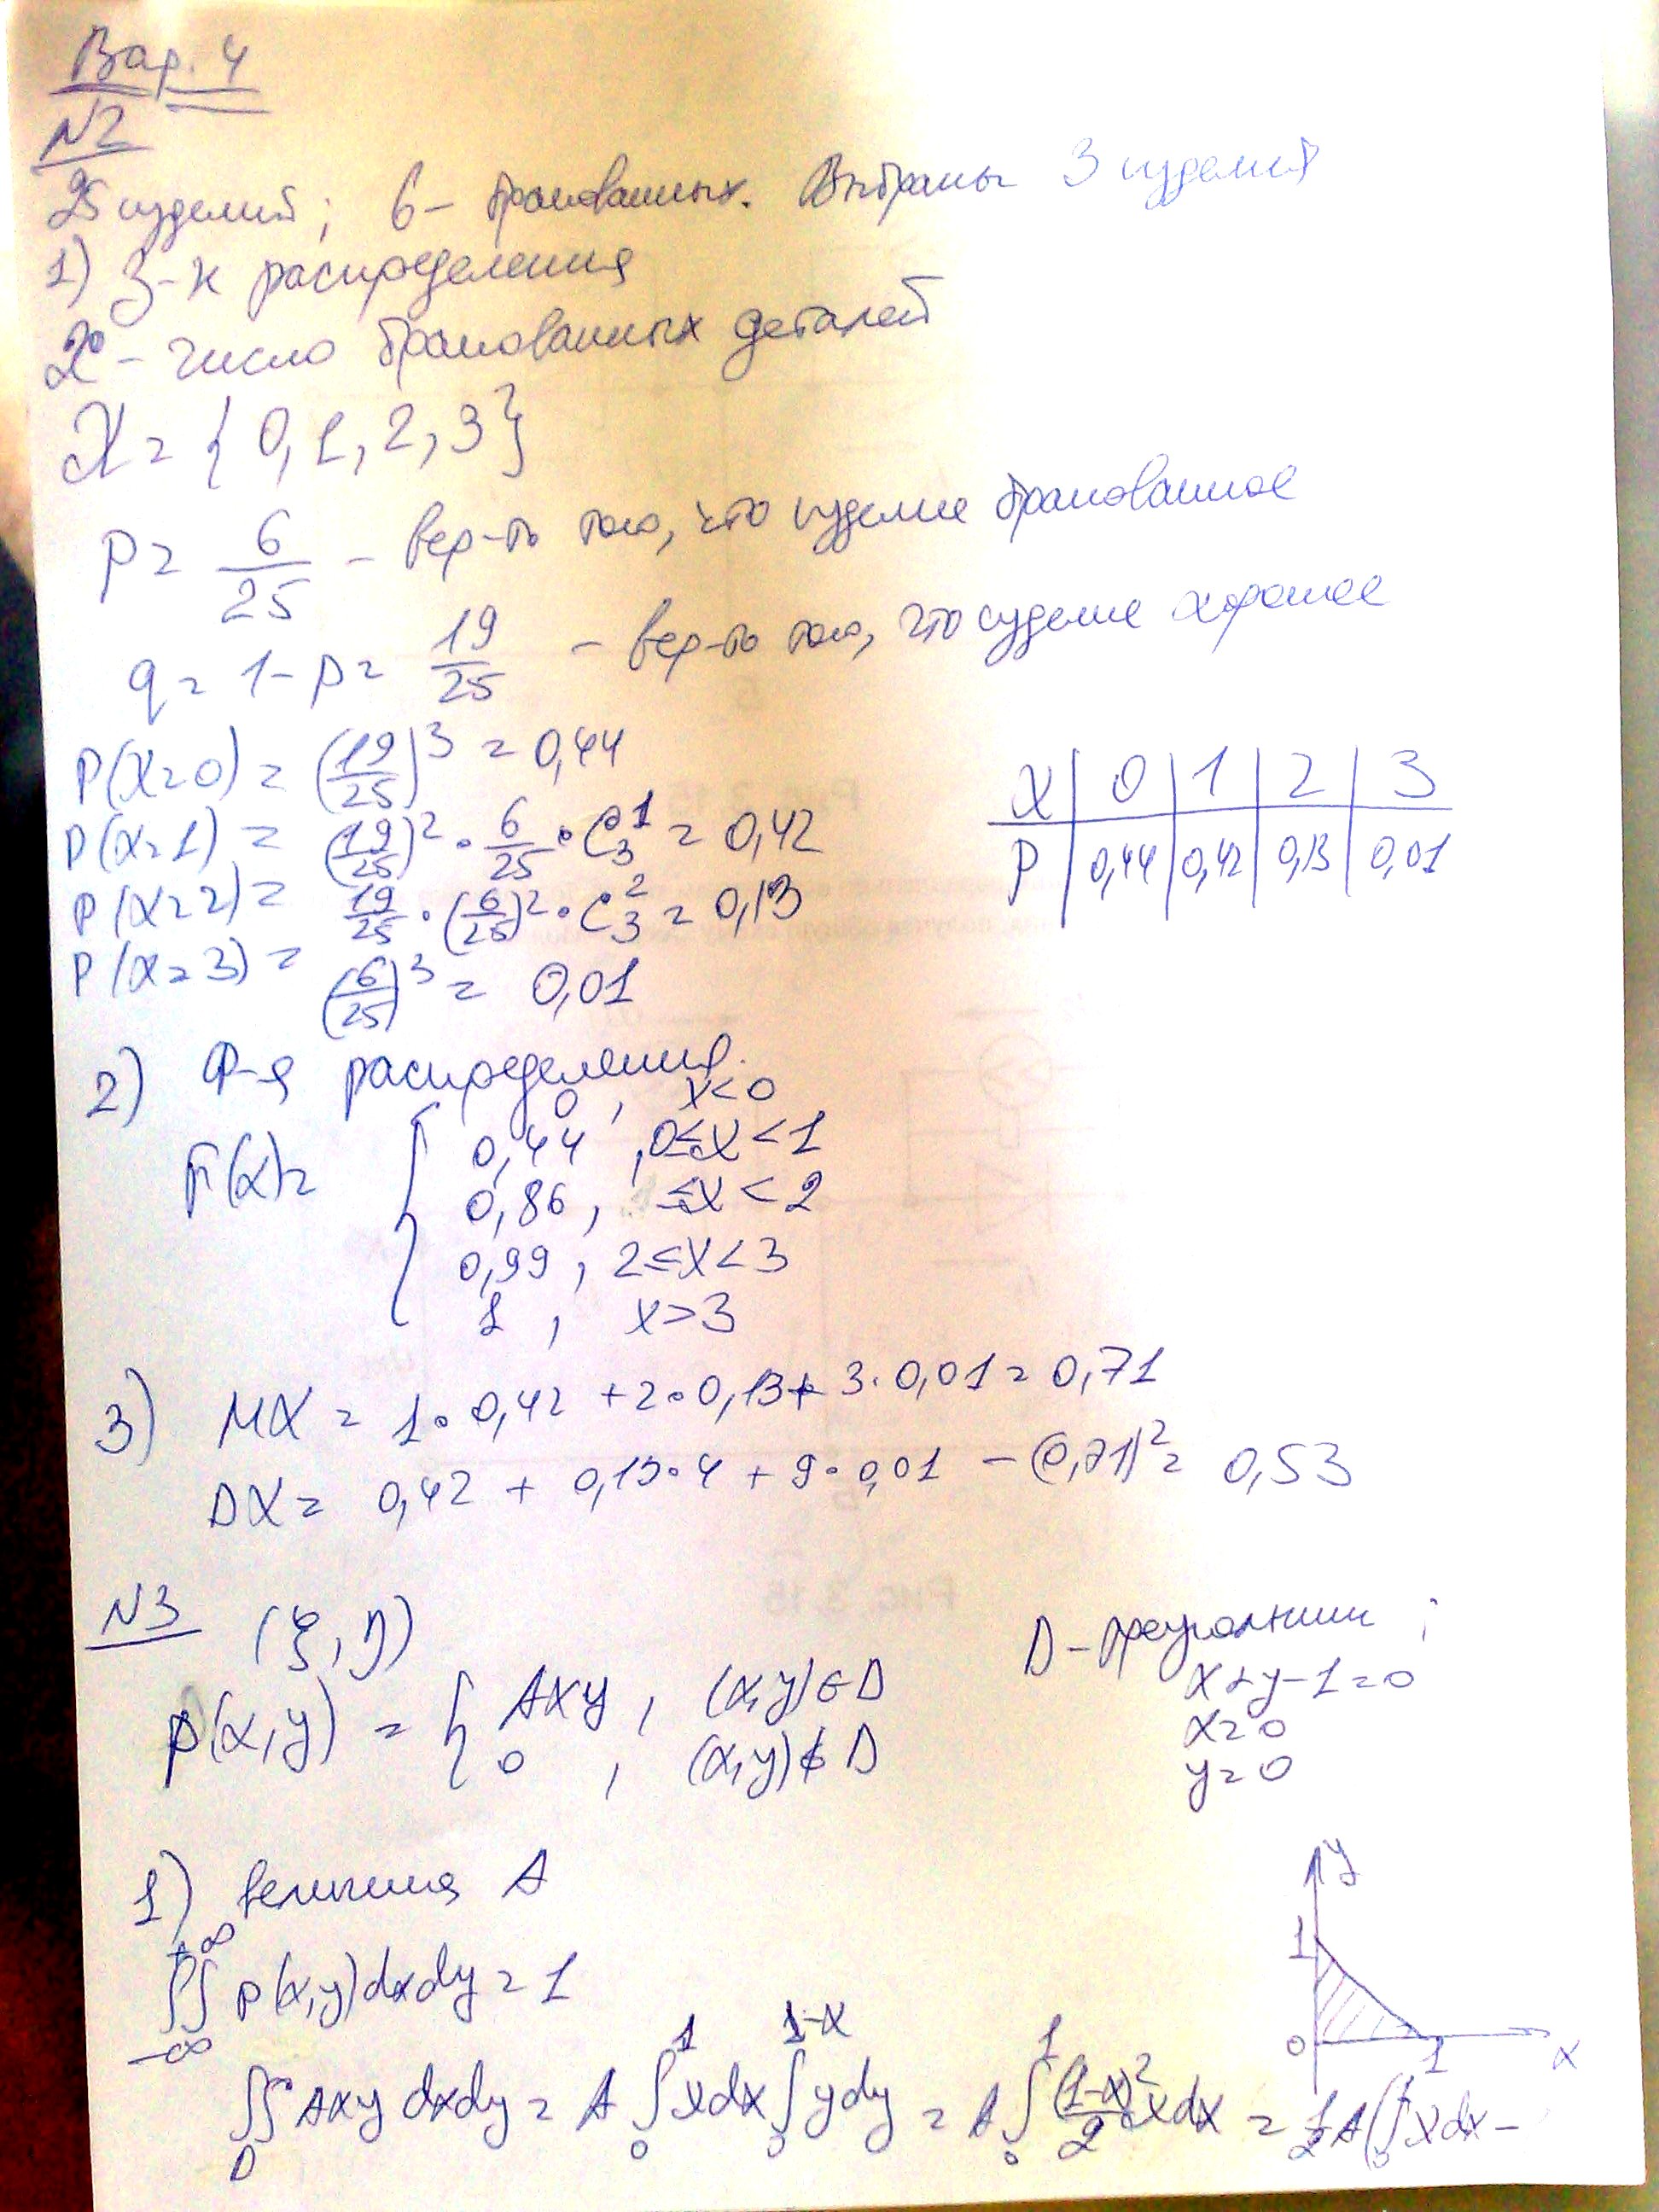 Вар. 4
N2
25 изделий; 6 – бракованных. Выбраны 3 изделия
1) З-н распределения
X – число бракованных деталей
X = {0, 1, 2, 3}
p = 6/25 – вер-ть того, что изделие бракованное
q = 1 - p = 19/25 – вер-ть того, что изделие хорошее
P(X=0) = (19/25)^3 = 0,44
P(x=1) = (19/25)^2 · 6/25 · C_3^1 = 0,42
P(x=2) = 19/25 · (6/25)^2 · C_3^2 = 0,13
P(x=3) = (6/25)^3 = 0,01
X | 0 | 1 | 2 | 3
P | 0,44 | 0,42 | 0,13 | 0,01
2) Ф-я распределения.
F(x) = { 0, x<0
0,44, 0≤x<1
0,86, ≤x<2
0,99, 2≤x<3
1, x>3
3) MX = 1·0,42 + 2·0,13 + 3·0,01 = 0,71
DX = 0,42 + 0,13·4 + 9·0,01 – (0,71)^2 = 0,53
N3 (ξ, η)
D – треугольник;
p(x,y) = { Axy, (x,y)∈D
0, (x,y)∉D
x+y-1=0
x=0
y=0
1) величина A
∫∫_{-∞}^{+∞} p(x,y)dxdy = 1
y
1
0
1
x
∫∫_D Axy dxdy = A ∫_0^1 xdx ∫_0^{1-x} ydy = A ∫_0^1 (1-x)^2/2 · xdx = 1/2 A(∫_0^1 xdx –